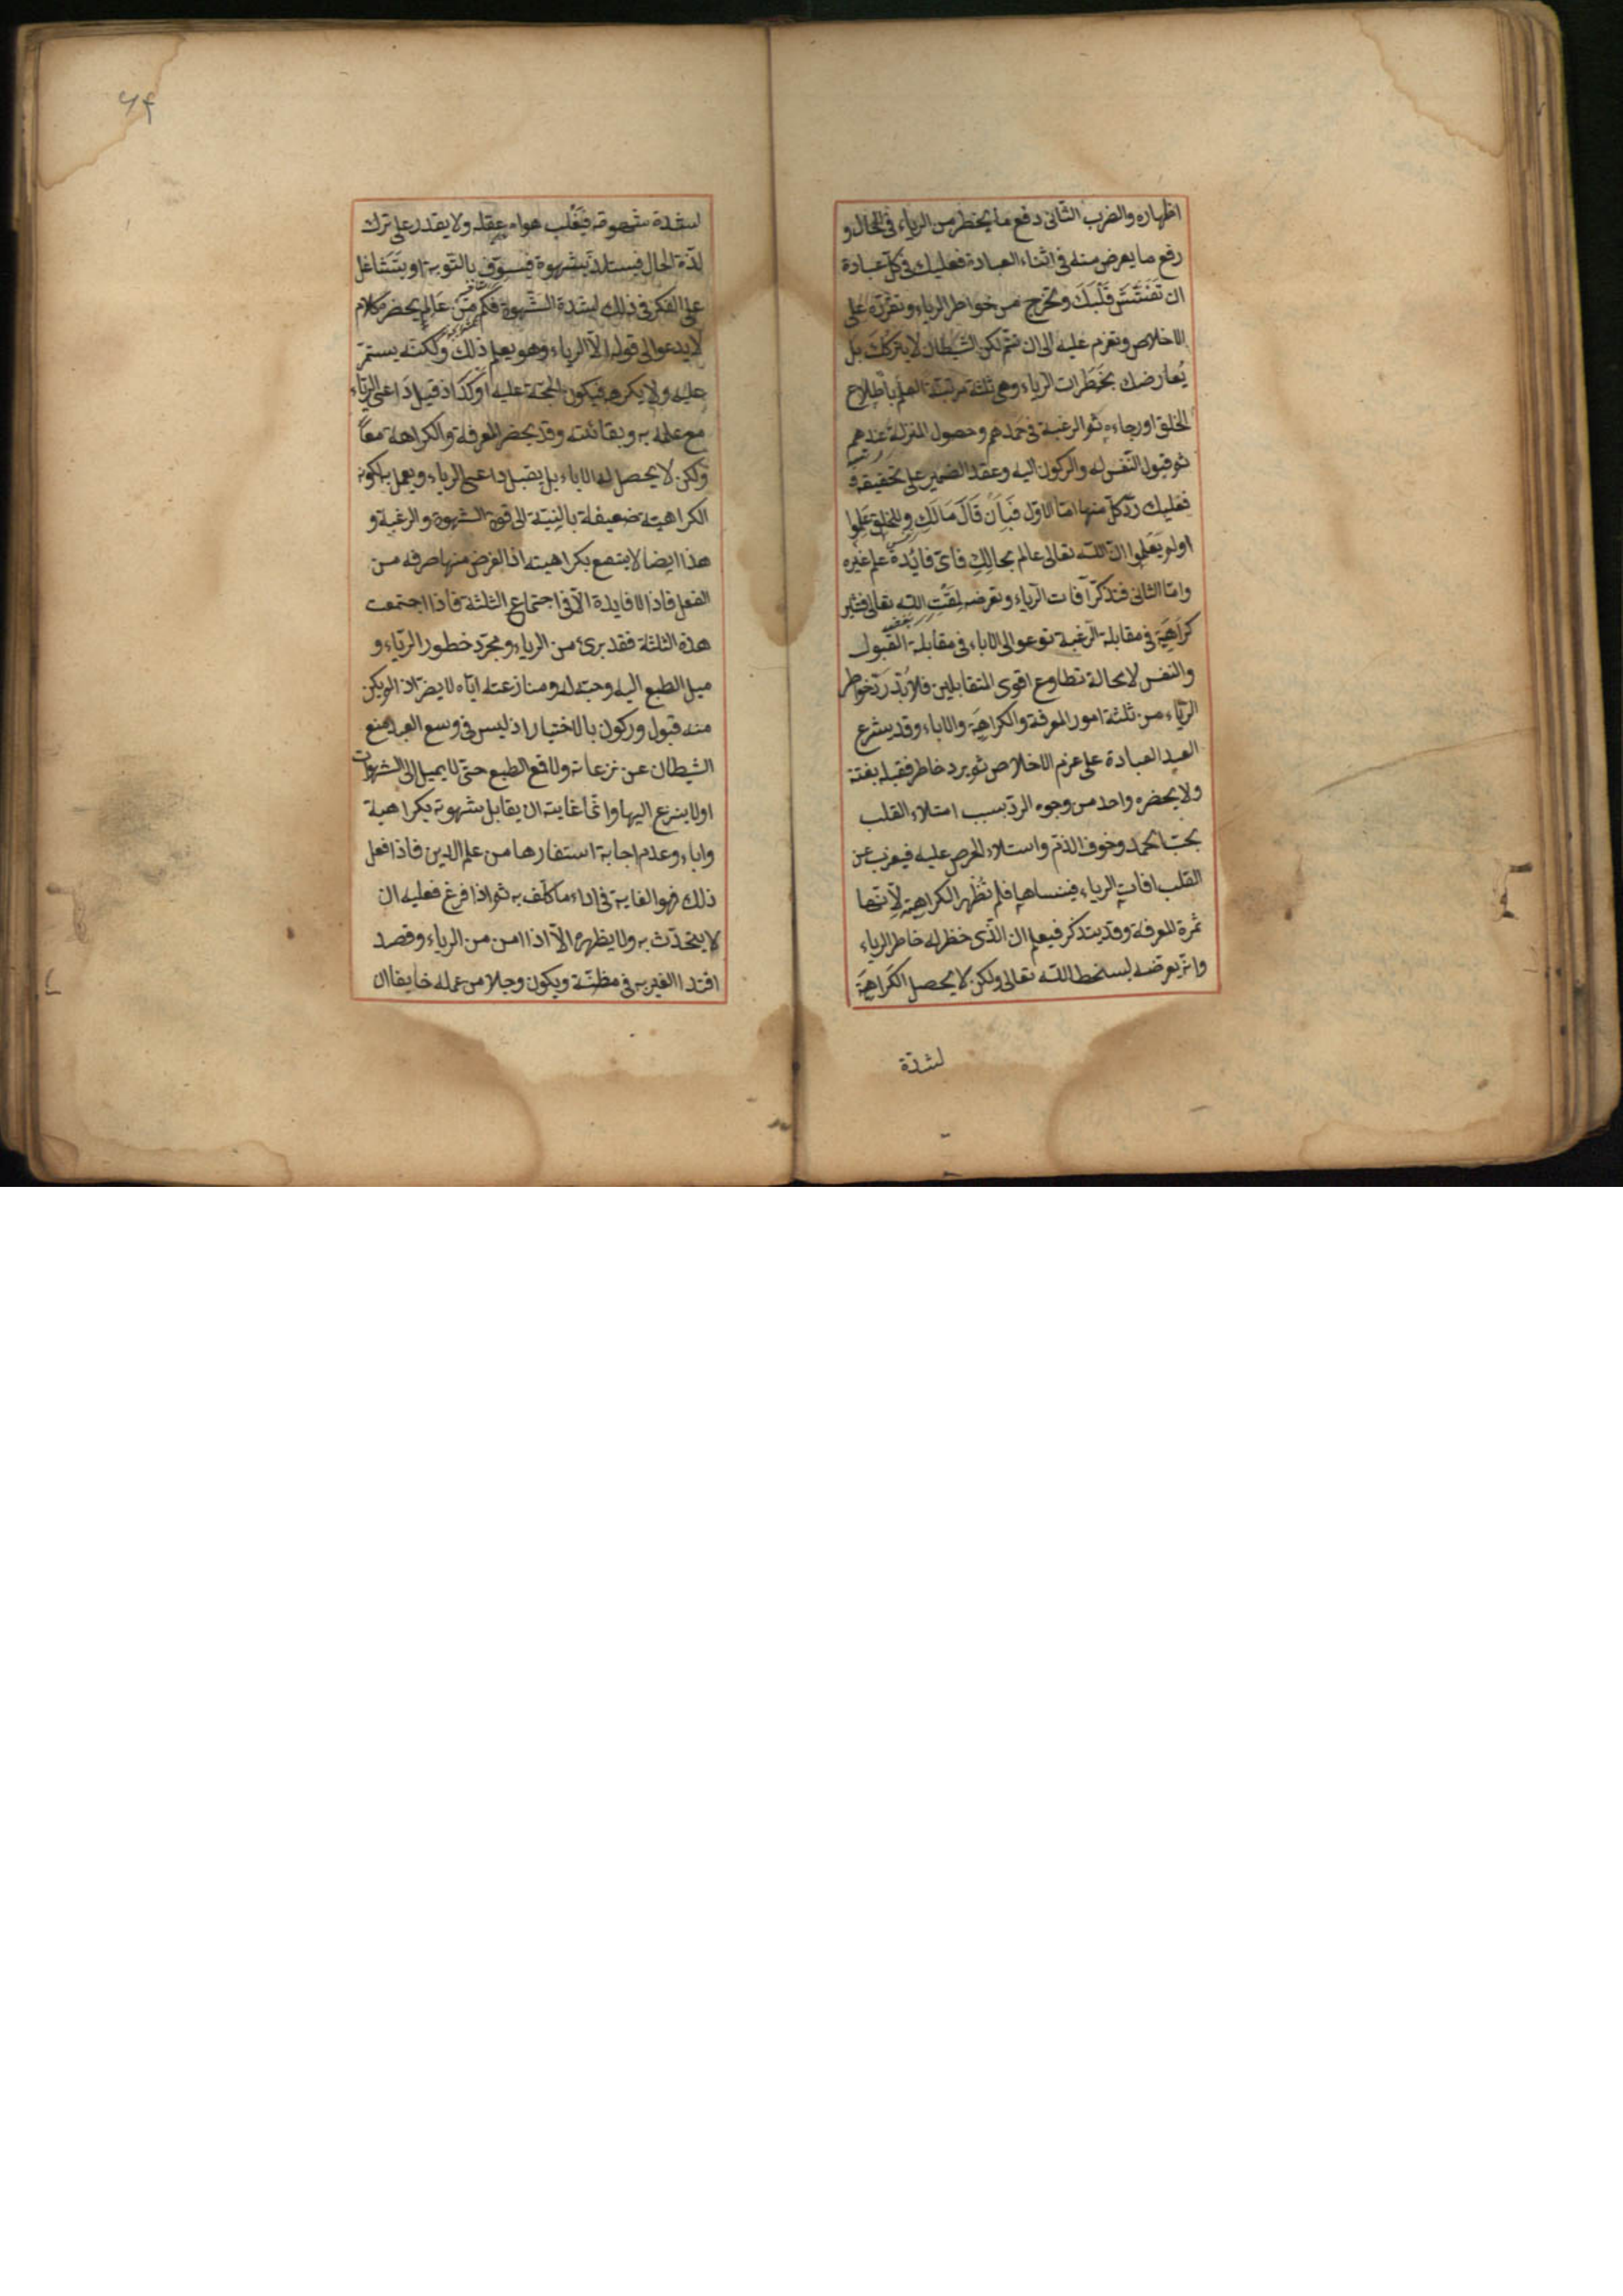 اظهاره والضرب الثانى دفع ما يخطر من الرياء فى الحال و
رفع ما يعرض منه فى اثناء العبادة فعليك فى كل عبادة
ان تفتش قلبك وتخرج من خواطر الرياء وتقرره على
الاخلاص وتعزم عليه الى ان تتم لكن الشيطان لا يتركك بل
يعارضك بخطرات الرياء وهى ثلثة مرتبة العلم باطلاع
الخلق او رجاءه ثم الرغبة فى حمدهم وحصول المنزلة عندهم
ثم قبول النفس له والركون اليه وعقد الضمير على تحقيقه
فعليك رد كل منها اما الاول فبأن قال مالك وللخلق علموا
او لم يعلموا ان الله تعالى عالم بحالك فاى فائدة علم غيره
واما الثانى فتذكر آفات الرياء وتعرضه لمقت الله تعالى فتثير
كراهية فى مقابلة الرغبة تدعو الى الاباء فى مقابلة القبول
والنفس لا محالة تطاوع اقوى المتقابلين فلا بد رد خواطر
الرياء من ثلثة امور المعرفة والكراهية والاباء وقد يشرع
العبد العبادة على عزم الاخلاص ثم يرد خاطر فقبله بغتة
ولا يحضره واحد من وجوه الرد بسبب امتلاء القلب
بحب الحمد وخوف الذم واستلاء الحرص عليه فيعزب عن
القلب افات الرياء فينساها فلم تظهر الكراهية لانها
ثمرة المعرفة وقد يتذكر فيعلم ان الذى خطر له خاطر الرياء
وانه يعرضه لسخط الله تعالى ولكن لا يحصل الكراهية
لشدة
٦٤
لشدة شهوته فيغلب هواه عقله ولا يقدر على ترك
لذة الحال فيستلذ بشهوة فيسوف بالتوبة او يتشاغل
على الفكر فى ذلك لشدة الشهوة فكم من عالم يحضر كلام
لا يدعو الى قوله الا الرياء وهو يعلم ذلك ولكنه يستمر
عليه ولا يكرهه فيكون الحجة عليه اوكد اذ قبل داعى الرياء
مع علمه به وبغائلته وقد يحضر المعرفة والكراهة معاً
ولكن لا يحصل له الاباء بل يقبل داعى الرياء ويعمل به لكون
الكراهية ضعيفة بالنسبة الى قوة الشهوة والرغبة و
هذا ايضا لا ينتفع بكراهيته اذ الغرض منها صرفه من
الفعل فاذا لا فايدة الا فى اجتماع الثلثة فاذا اجتمعت
هذه الثلثة فقد برئ من الرياء ومجرد خطور الرياء و
ميل الطبع اليه وحبه له ومنازعته اياه لا يضر اذ لم يكن
منه قبول وركون بالاختيار اذ ليس فى وسع العبد منع
الشيطان عن نزعاته ولا قمع الطبع حتى لا يميل الى الشهوات
او لا ينزع اليها وانما غايته ان يقابل شهوته بكراهية
واباء وعدم اجابة استفارها من علم الدين فاذا فعل
ذلك فهو الغاية فى اداء ما كلف به ثم اذا فرغ فعليه ان
لا يتحدث به ولا يظهره الا اذا امن من الرياء وقصد
اقتدا الغير به فى مظنته ويكون وجلا من عمله خايفا ان